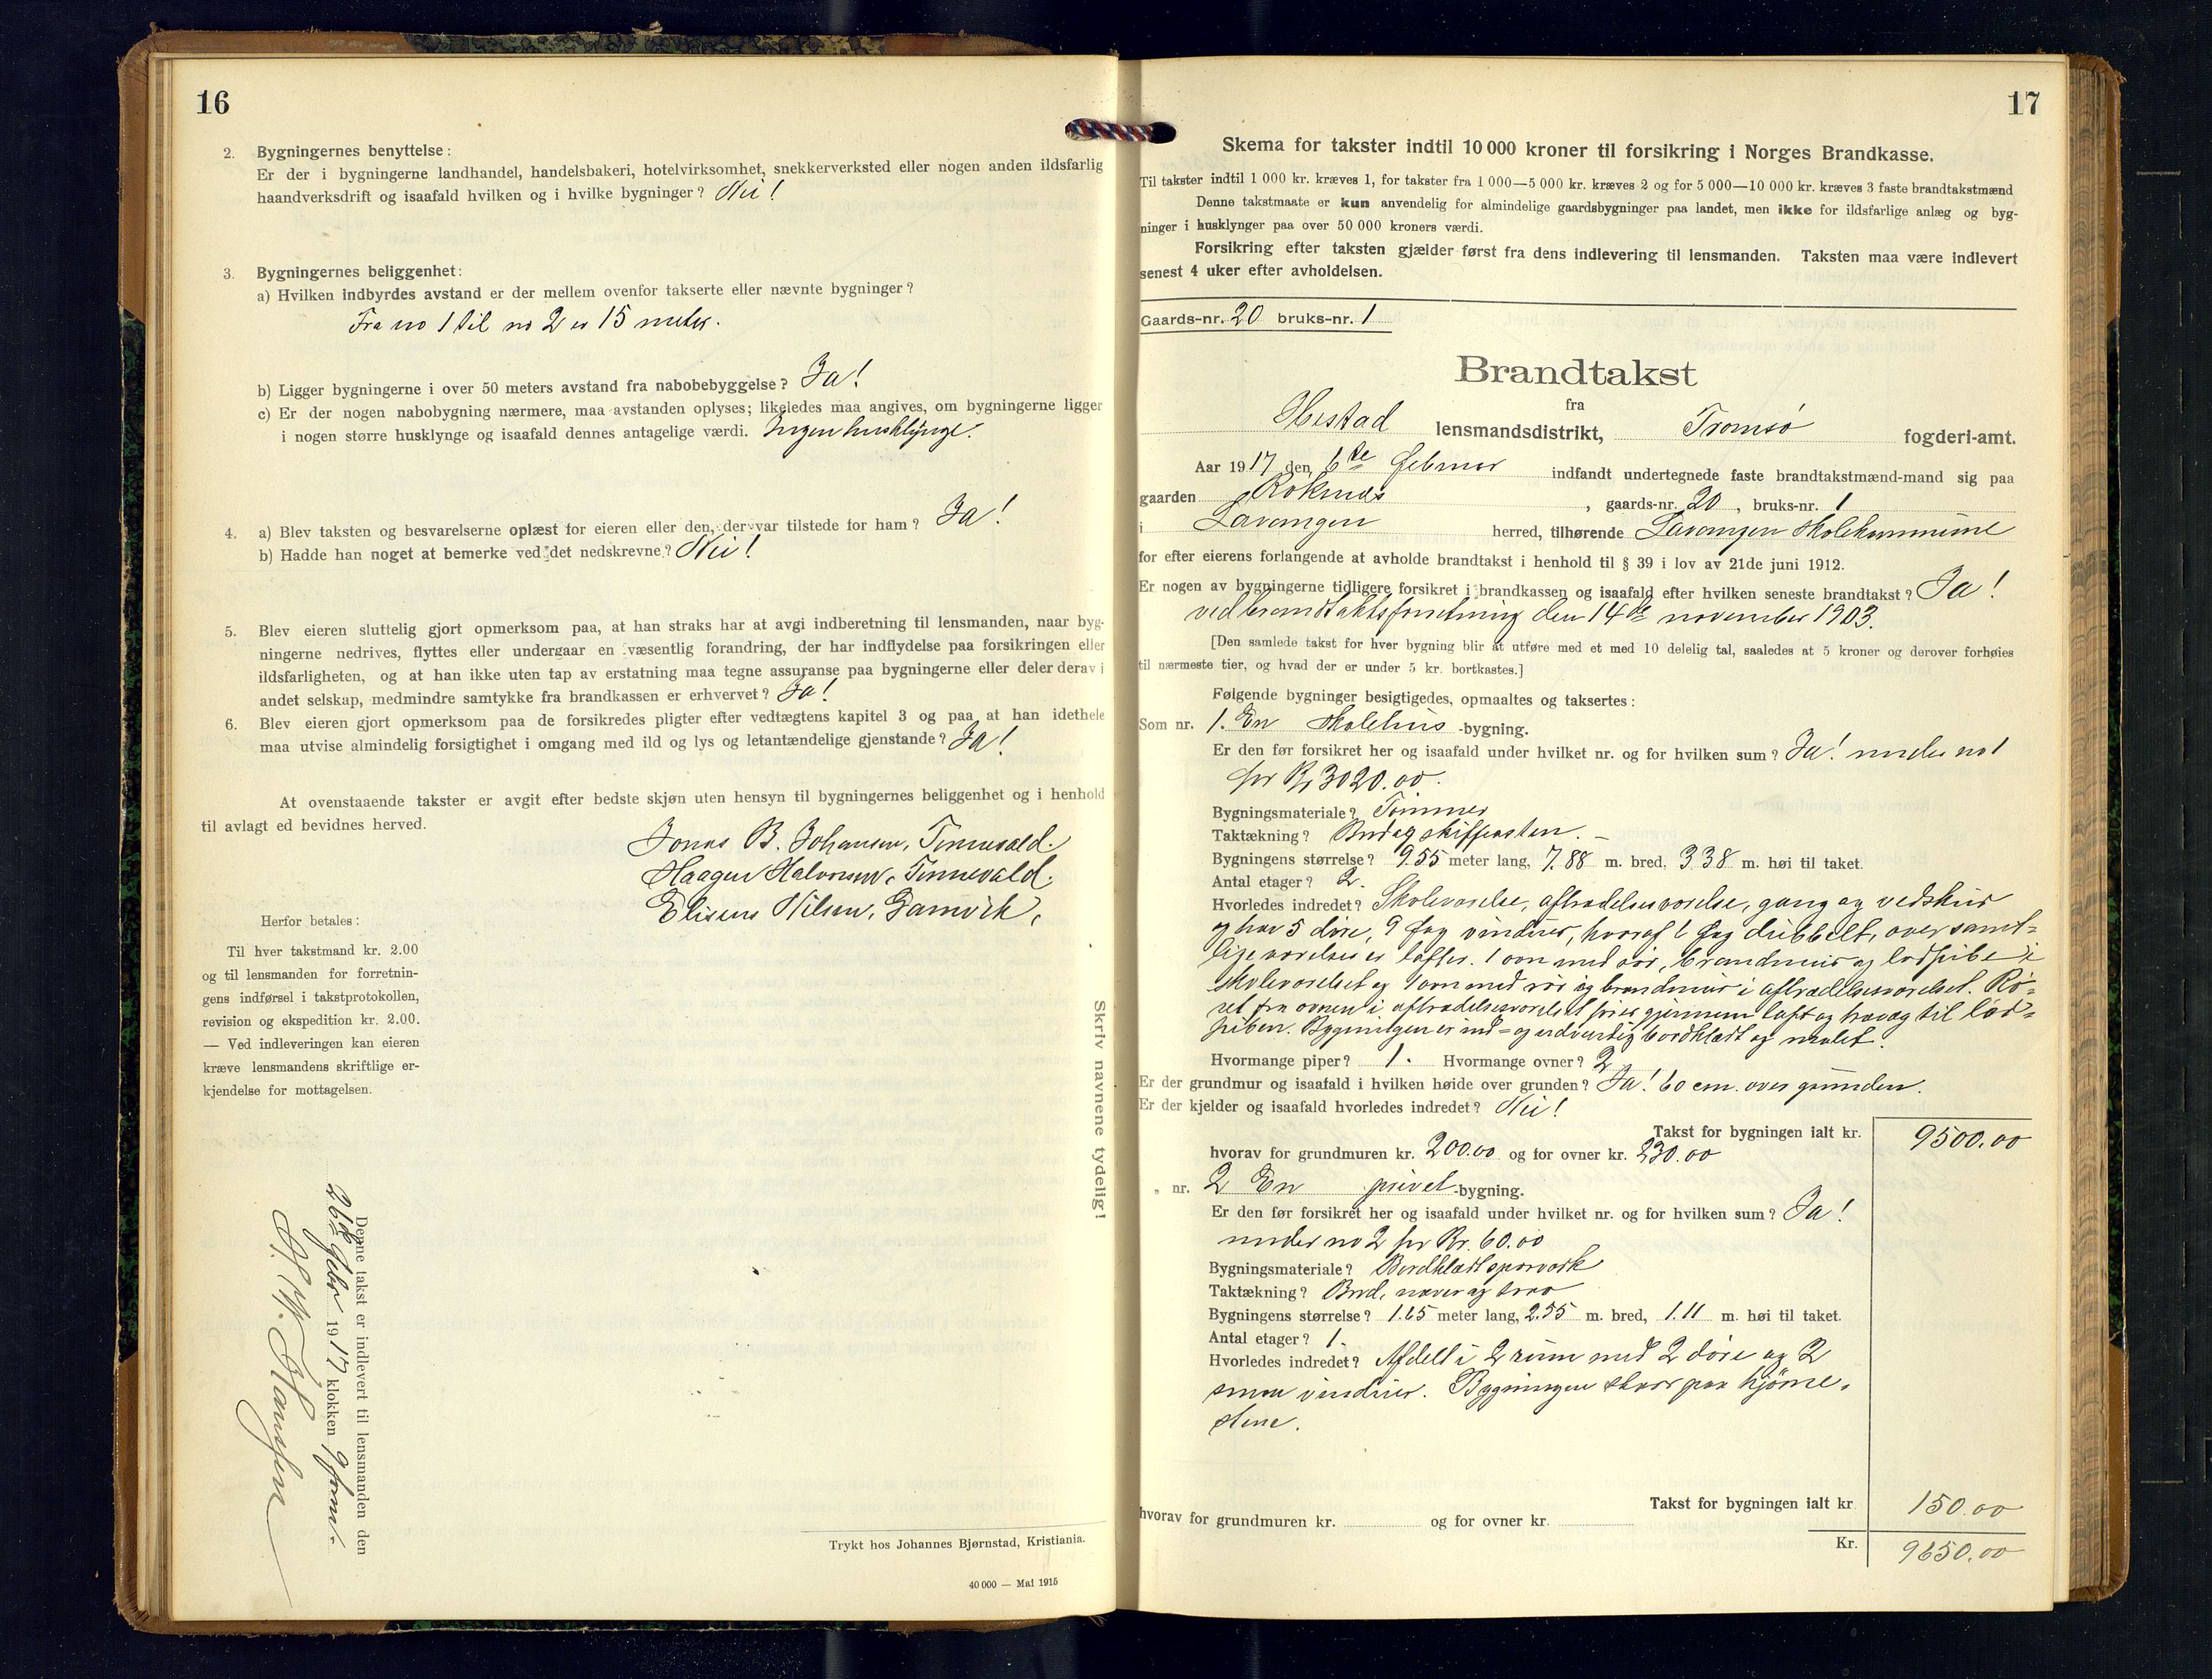 16
2. Bygningernes benyttelse:
Er der i bygningerne landhandel, handelsbakeri, hotelvirksomhet, snekkerverksted eller nogen anden ildsfarlig
haandverksdrift og isaafald hvilken og i hvilke bygninger? Nei!
3. Bygningernes beliggenhet:
a) Hvilken indbyrdes avstand er der mellem ovenfor takserte eller nævnte bygninger?
Fra no 1 til no 2 er 15 meter.
b) Ligger bygningerne i over 50 meters avstand fra nabobebyggelse? Ja!
c) Er der nogen nabobygning nærmere, maa avstanden oplyses; likeledes maa angives, om bygningerne ligger
i nogen større husklynge og isaafald dennes antagelige værdi. Ingen husklynge.
4. a) Blev taksten og besvarelserne oplæst for eieren eller den, der var tilstede for ham? Ja!
b) Hadde han noget at bemerke ved det nedskrevne? Nei!
5. Blev eieren sluttelig gjort opmerksom paa, at han straks har at avgi indberetning til lensmanden, naar byg-
ningerne nedrives, flyttes eller undergaar en væsentlig forandring, der har indflydelse paa forsikringen eller
ildsfarligheten, og at han ikke uten tap av erstatning maa tegne assuranse paa bygningerne eller deler derav i
andet selskap, medmindre samtykke fra brandkassen er erhvervet? Ja!
6. Blev eieren gjort opmerksom paa de forsikredes pligter efter vedtægtens kapitel 3 og paa at han idethele
maa utvise almindelig forsigtighet i omgang med ild og lys og letantændelige gjenstande? Ja!
At ovenstaaende takster er avgit efter bedste skjøn uten hensyn til bygningernes beliggenhet og i henhold
til avlagt ed bevidnes herved.
Jonas B. Johansen, Tennevald.
Haagen Halvorsen, Tennevald.
Eliseus Nilsen, Gamvik.
Herfor betales:
Til hver takstmand kr. 2.00
og til lensmanden for forretnin-
gens indførsel i takstprotokollen,
revision og ekspedition kr. 2.00.
— Ved indleveringen kan eieren
kræve lensmandens skriftlige er-
kjendelse for mottagelsen.
Skriv navnene tydelig!
Denne takst er indlevert til lensmanden den
26de febr 1917 klokken 9 form.
Hansen
Trykt hos Johannes Bjørnstad, Kristiania.
40 000 — Mai 1915
17
Skema for takster indtil 10 000 kroner til forsikring i Norges Brandkasse.
Til takster indtil 1 000 kr. kræves 1, for takster fra 1 000—5 000 kr. kræves 2 og for 5 000—10 000 kr. kræves 3 faste brandtakstmænd
Denne takstmaate er kun anvendelig for almindelige gaardsbygninger paa landet, men ikke for ildsfarlige anlæg og byg-
ninger i husklynger paa over 50 000 kroners værdi.
Forsikring efter taksten gjælder først fra dens indlevering til lensmanden. Taksten maa være indlevert
senest 4 uker efter avholdelsen.
Gaards-nr. 20 bruks-nr. 1
Brandtakst
fra
Ibestad lensmandsdistrikt, Tromsø fogderi-amt.
Aar 1917 den 6te februar indfandt undertegnede faste brandtakstmænd-mand sig paa
gaarden Røknes, gaards-nr. 20, bruks-nr. 1
i Lavangen herred, tilhørende Lavangen Skolekommune
for efter eierens forlangende at avholde brandtakst i henhold til § 39 i lov av 21de juni 1912.
Er nogen av bygningerne tidligere forsikret i brandkassen og isaafald efter hvilken seneste brandtakst? Ja!
ved brandtakstforretning den 14de november 1903.
[Den samlede takst for hver bygning blir at utføre med et med 10 delelig tal, saaledes at 5 kroner og derover forhøies
til nærmeste tier, og hvad der er under 5 kr. bortkastes.]
Følgende bygninger besigtigedes, opmaaltes og taksertes:
Som nr. 1. En Skolehus -bygning.
Er den før forsikret her og isaafald under hvilket nr. og for hvilken sum? Ja! under no 1
for Kr 3020.00.
Bygningsmateriale? Tømmer
Taktækning? Bord og skiffersten. —
Bygningens størrelse? 9.55 meter lang, 7.88 m. bred, 3.38 m. høi til taket.
Antal etager? 2.
Hvorledes indredet? Skoleværelse, aftrædelsesværelse, gang og vedskur
og har 5 døre, 9 fag vinduer, hvoraf 6 fag dubbelt, over samt-
lige værelser er lofter. 1 ovn med rør, brandmur og lodpibe i
skoleværelset og 1 ovn med rør og brandmur i aftrædelsesværelset. Rø-
ret fra ovnen i aftrædelsesværelset gjennem loft og til lod-
piben. Bygningen er ind- og udvendig bordklædt og malet.
Hvormange piper? 1. Hvormange ovner? 2
Er der grundmur og isaafald i hvilken høide over grunden? Ja! 60 cm. over grunden.
Er der kjelder og isaafald hvorledes indredet? Nei!
Takst for bygningen ialt kr. 9500.00
hvorav for grundmuren kr. 200.00 og for ovner kr. 230.00
„ nr. 2 En privet -bygning.
Er den før forsikret her og isaafald under hvilket nr. og for hvilken sum? Ja!
under no 2 for Kr. 60.00
Bygningsmateriale? Bordklædt sparværk
Taktækning? Bord, næver og torv
Bygningens størrelse? 1.65 meter lang, 2.55 m. bred, 1.11 m. høi til taket.
Antal etager? 1.
Hvorledes indredet? Afdelt i 2 rum med 2 døre og 2
smaa vinduer. Bygningen staar paa hjørne-
stene.
Takst for bygningen ialt kr 150.00
hvorav for grundmuren kr. og for ovner kr.
Kr. 9650.00